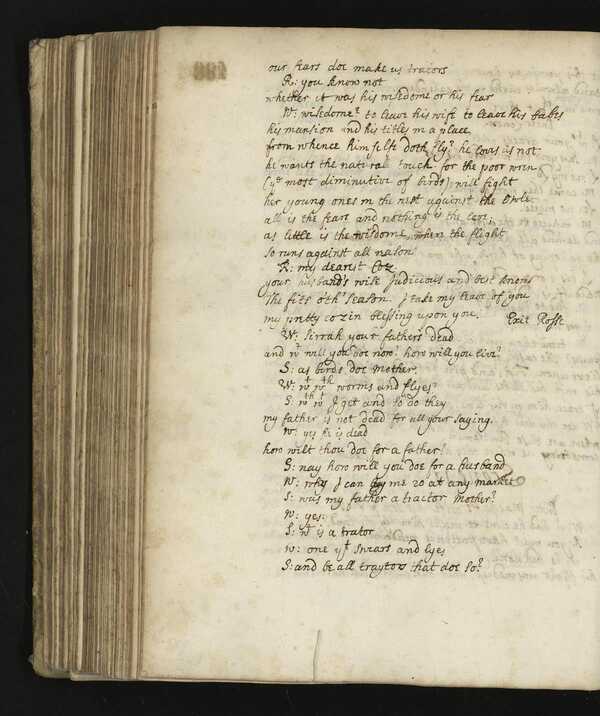 our fears doe make us traiors
R: you know not
whether it was his wisedome or his fear
W: wisedome? to leave his wife to leave his babes
his mansion and his titles in a place
from whence himselfe doth fly? he loves us not
he wants the natural touch for the poor wren
(ye most diminutive of birds) will fight
her young ones in the nest against the Owle
all is the fears and nothing is the love;
as little is the wisdome, when the flight
so runs against all reason
R: my dearest Coz
your husband's wise Judicious and best knows
the fits o'th' season. I take my leave of you
my pretty cozin blessing upon you. Exit Rosse
W: sirrah your fathers dead
and wt will you doe now? how will you live?
S: as birds doe Mother,
W: wt wth worms and flyes?
S: wth wt I get and so do they
my father is not dead for all your saying.
W: yes he is dead
how wilt thou doe for a father?
S: nay how will you doe for a husband
W: why I can buy me 20 at any market
S: was my father a tractor Mother?
W: yes:
S: wt is a trator
W: one yt swears and lyes
S: and be all traytors that doe so?